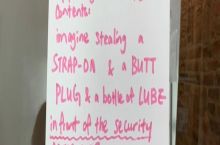 Contents:
imagine stealing a
STRAP-ON & a BUTT
PLUG & a bottle of LUBE
in front of the security